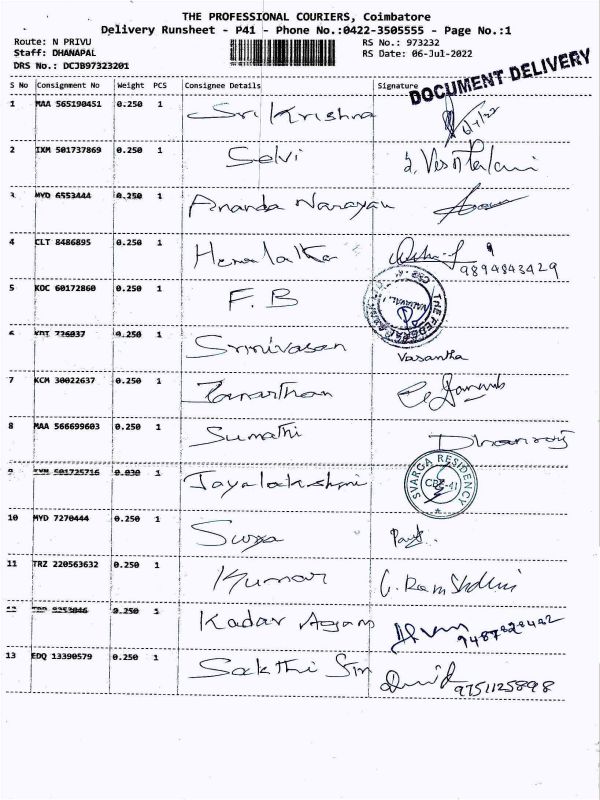 THE PROFESSIONAL COURIERS, Coimbatore
Delivery Runsheet - P41 - Phone No.:0422-3505555 - Page No.:1
Route: N PRIVU RS No.: 973232
Staff: DHANAPAL RS Date: 06-Jul-2022
DRS No.: DCJB97323201
DOCUMENT DELIVERY
S No Consignment No Weight PCS Consignee Details Signature
1 MAA 565190451 0.250 1 Sri Krishna
2 IXM 501737869 0.250 1 Selvi
3 MYD 6553444 0.250 1 Ananda Narayan
4 CLT 8486895 0.250 1 Hemalatha
9894843429
5 KOC 60172860 0.250 1 F.B
6 726037 0.250 1 Srinivasan Vasantha
7 KCM 30022637 0.250 1 Janarthan
8 MAA 566699603 0.250 1 Sumathi Dhanraj
9 501725716 0.030 1 Jayalakshmi
SVARGA RESIDENCY
CBE-41
10 MYD 7270444 0.250 1 Surya
11 TRZ 220563632 0.250 1 Kumar
12 0.250 1 Kadar Agam
13 EDQ 13390579 0.250 1 Sakthi Sri
9751125898